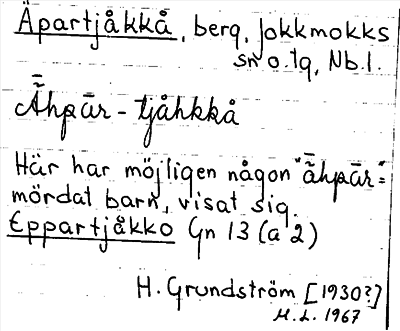 Äpartjåkkå, berg, Jokkmokks
sn o. tg, Nb. l.
Ā̈hpār - tjåhkkå
Här har möjligen någon "ā̈hpār" =
mördat barn, visat sig.
Eppartjåkko Gn 13 (a 2)
H. Grundström [1930?]
M. L. 1967